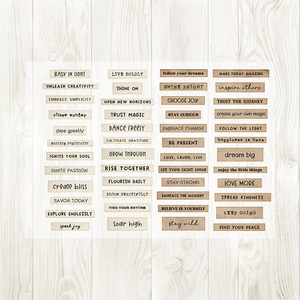 BASK IN LIGHT
UNLEASH CREATIVITY
EMBRACE SIMPLICITY
chase wonder
dare greatly
RADIATE POSITIVITY
IGNITE YOUR SOUL
IGNITE PASSION
create bliss
SAVOR TODAY
EXPLORE ENDLESSLY
spark joy
LIVE BOLDLY
SHINE ON
OPEN NEW HORIZONS
TRUST MAGIC
DANCE FREELY
CULTIVATE GRATITUDE
GROW THROUGH
RISE TOGETHER
FLOURISH DAILY
BLOOM BEAUTIFULLY
FIND YOUR RHYTHM
soar high
follow your dreams
SHINE BRIGHT
CHOOSE JOY
STAY CURIOUS
EMBRACE CHANGE
BE PRESENT
LOVE, LAUGH, LIVE
LET YOUR LIGHT SHINE
STAY STRONG
EMBRACE THE MOMENT
BELIEVE IN YOURSELF
stay wild
MAKE TODAY AMAZING
inspire others
TRUST THE JOURNEY
create your own magic
FOLLOW THE LIGHT
Happiness is here
dream big
enjoy the little things
LOVE MORE
SPREAD KINDNESS
KEEP GOING
FIND YOUR PEACE